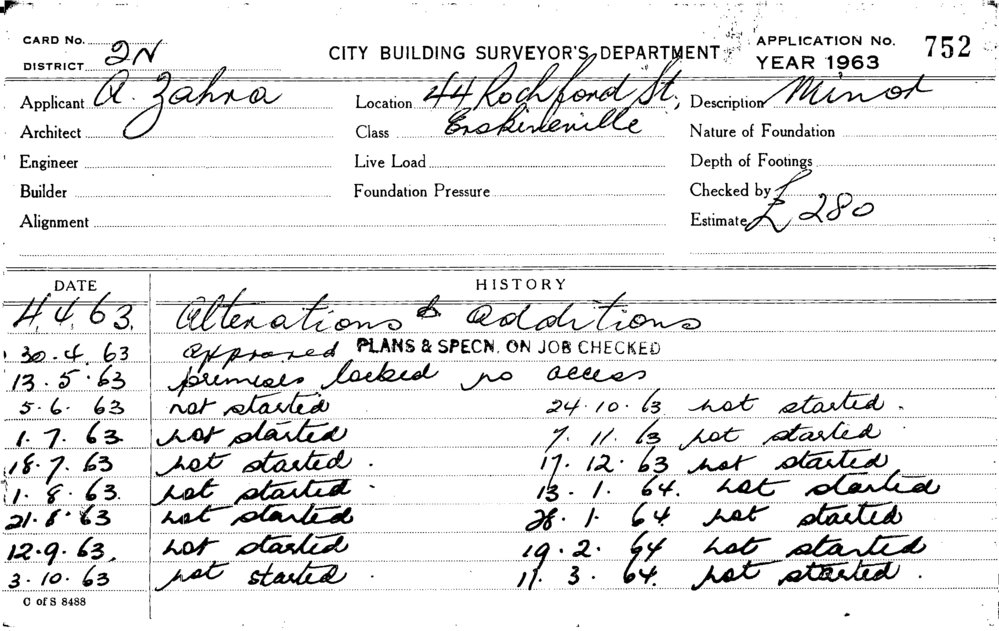 CARD No.
DISTRICT 2N
CITY BUILDING SURVEYOR'S DEPARTMENT
APPLICATION No. 752
YEAR 1963
Applicant A. Zahra
Location 44 Rochford St,
Description Minor
Architect
Class Erskineville
Nature of Foundation
Engineer
Live Load
Depth of Footings
Builder
Foundation Pressure
Checked by
Alignment
Estimate £ 280
DATE HISTORY
4.4.63. Alterations & additions
30.4.63 approved PLANS & SPECN. ON JOB CHECKED
13.5.63 premises locked no access
5.6.63 not started 24.10.63 not started.
1.7.63 not started 7.11.63 not started
18.7.63 not started. 17.12.63 not started
1.8.63. not started. 13.1.64. not started
21.8.63 not started 28.1.64. not started
12.9.63. not started 19.2.64 not started
3.10.63 not started 11.3.64. not started.
C of S 8488